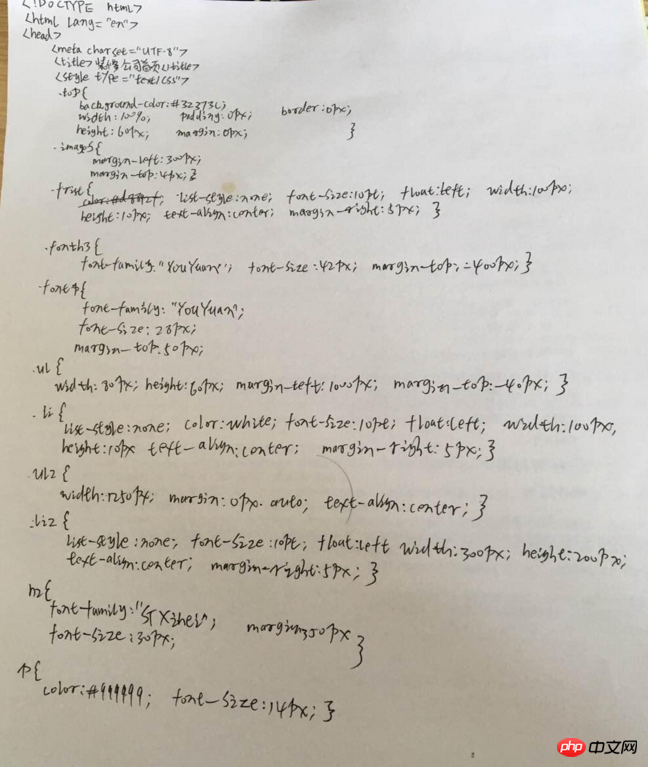 <!DOCTYPE html>
<html lang="en">
<head>
<meta charset="UTF-8">
<title>装修公司首页</title>
<style type="text/css">
.top{
background-color:#32373C;
width:100%; padding:0px; border:0px;
height:60px; margin:0px; }
.images{
margin-left:300px;
margin-top:4px; }
.first{
list-style:none; font-size:10pt; float:left; width:100px;
height:10px; text-align:center; margin-right:5px; }
.fonth3{
font-family:"YouYuan"; font-size:42px; margin-top:-400px; }
.fontp{
font-family:"YouYuan";
font-size:28px;
margin-top:50px;
.ul{
width:80px; height:60px; margin-left:1000px; margin-top:-40px; }
.li{
list-style:none; color:white; font-size:10pt; float:left; width:100px,
height:10px text-align:center; margin-right:5px; }
.ul2{
width:1250px; margin:0px auto; text-align:center; }
.li2{
list-style:none; font-size:10pt; float:left width:300px; height:200px;
text-align:center; margin-right:5px; }
h2{
font-family:"STXihei";
font-size:30px; }
p{
color:#999999; font-size:14px; }
php 中文网